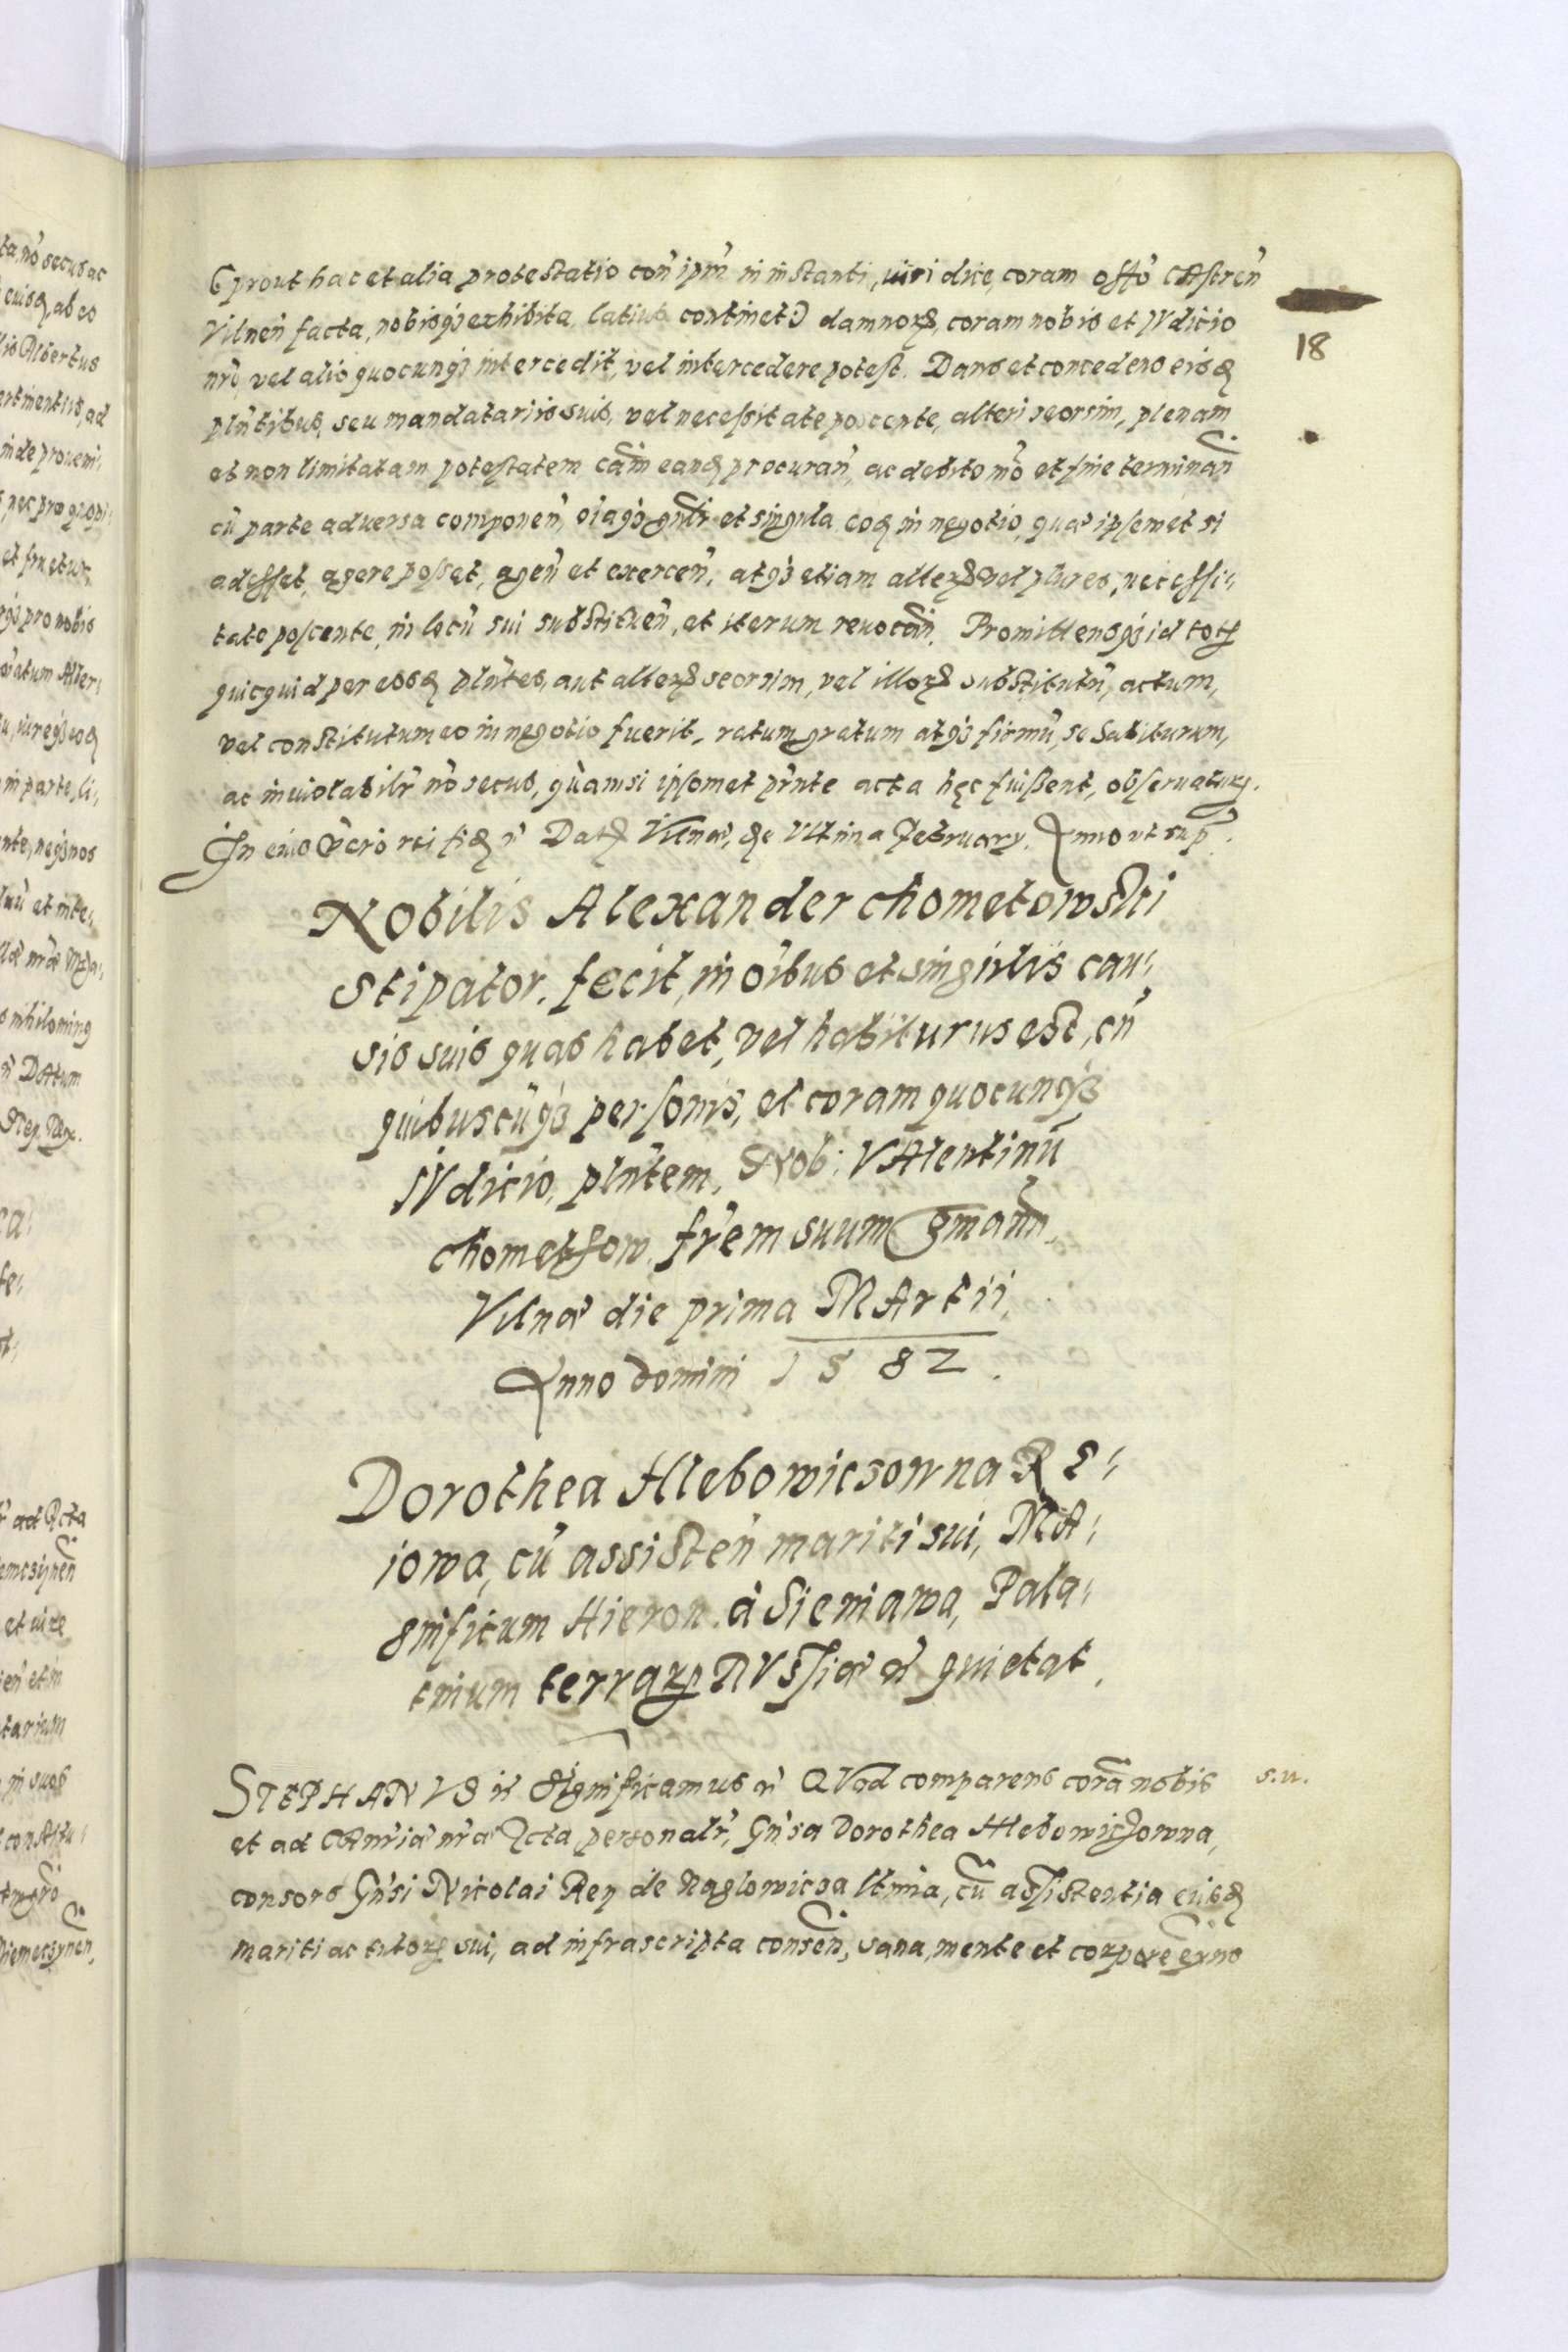 prout hac et alia protestatio con̄ ipm̄ in instanti, iuridice, coram offō CAstren̄
Vilnen̄ facta, nobisq3 exhibita, latius continet) damnorꝝ, coram nobis et IVdicio
nrō, vel alio quocunq3 intercedit, vel intercedere potest. Dans et concedens eisđ
plntibus, seu mandatariis suis, vel necessitate poscente, alteri seorsim, plenam
et non limitatam potestatem cam̄ eanđ procuran̄, ac debito mō et fine terminan̄
cū parte adversa componen̄, oiaq3 gnlr̄ et singula eođ in negotio, quæ ipsemet si
adesset, agere posset, agen̄ et exercen̄, atq3 etiam alterꝝ vel plures, necessi,,
tate poscente, in locū sui substituen̄, et iterum revocan̄. Promittensq3 id totꝝ
quicquid per eosđ plntes, aut alterꝝ seorsim, vel illorꝝ substitutū, actum,
vel constitutum eo in negotio fuerit, ratum gratum atq3 firmū, se habiturum,
ac inuiolabilr̄ nō secus, quam si ipsomet prn̄te acta hęc fuissent, obseruaturꝝ.
In cuius rei fiđ ē Datꝝ Vilnæ, die Vltima February. Anno ut sup̄.
Nobilis Alexander Chometowski
Stipator. fecit, in oībus et singulis cau,,
sis suis quas habet, vel habiturus est, cū
quibuscūq3 personis, et coram quocunq3
IVdicio, plntem, Nob: VAlentinū
Chometsow. frēm suum gman̄.
Vilnæ die prima MArtii
Anno domini 1582.
Dorothea Hlebowicsowna RE,,
iowa, cū assisten̄ mariti sui, MA,,
gnificum Hieron. à Sieniawa, Pala,,
tinum terrarꝝ RVssiæ ē quietat.
STEPHANVS ē Significamus ē QVod comparens corā nobis s.n.
et ad CAnrīæ nrǣ Acta personalr̄, Gn̄sa Dorothea Hlebowiczowna,
consors Gn̄si Nicolai Rey de Naglowicza ltmīa, cū assistentia eiusđ
mariti ac tutorꝝ sui, ad infrascripta consen̄, sana, mente et corpore exn̄s
18